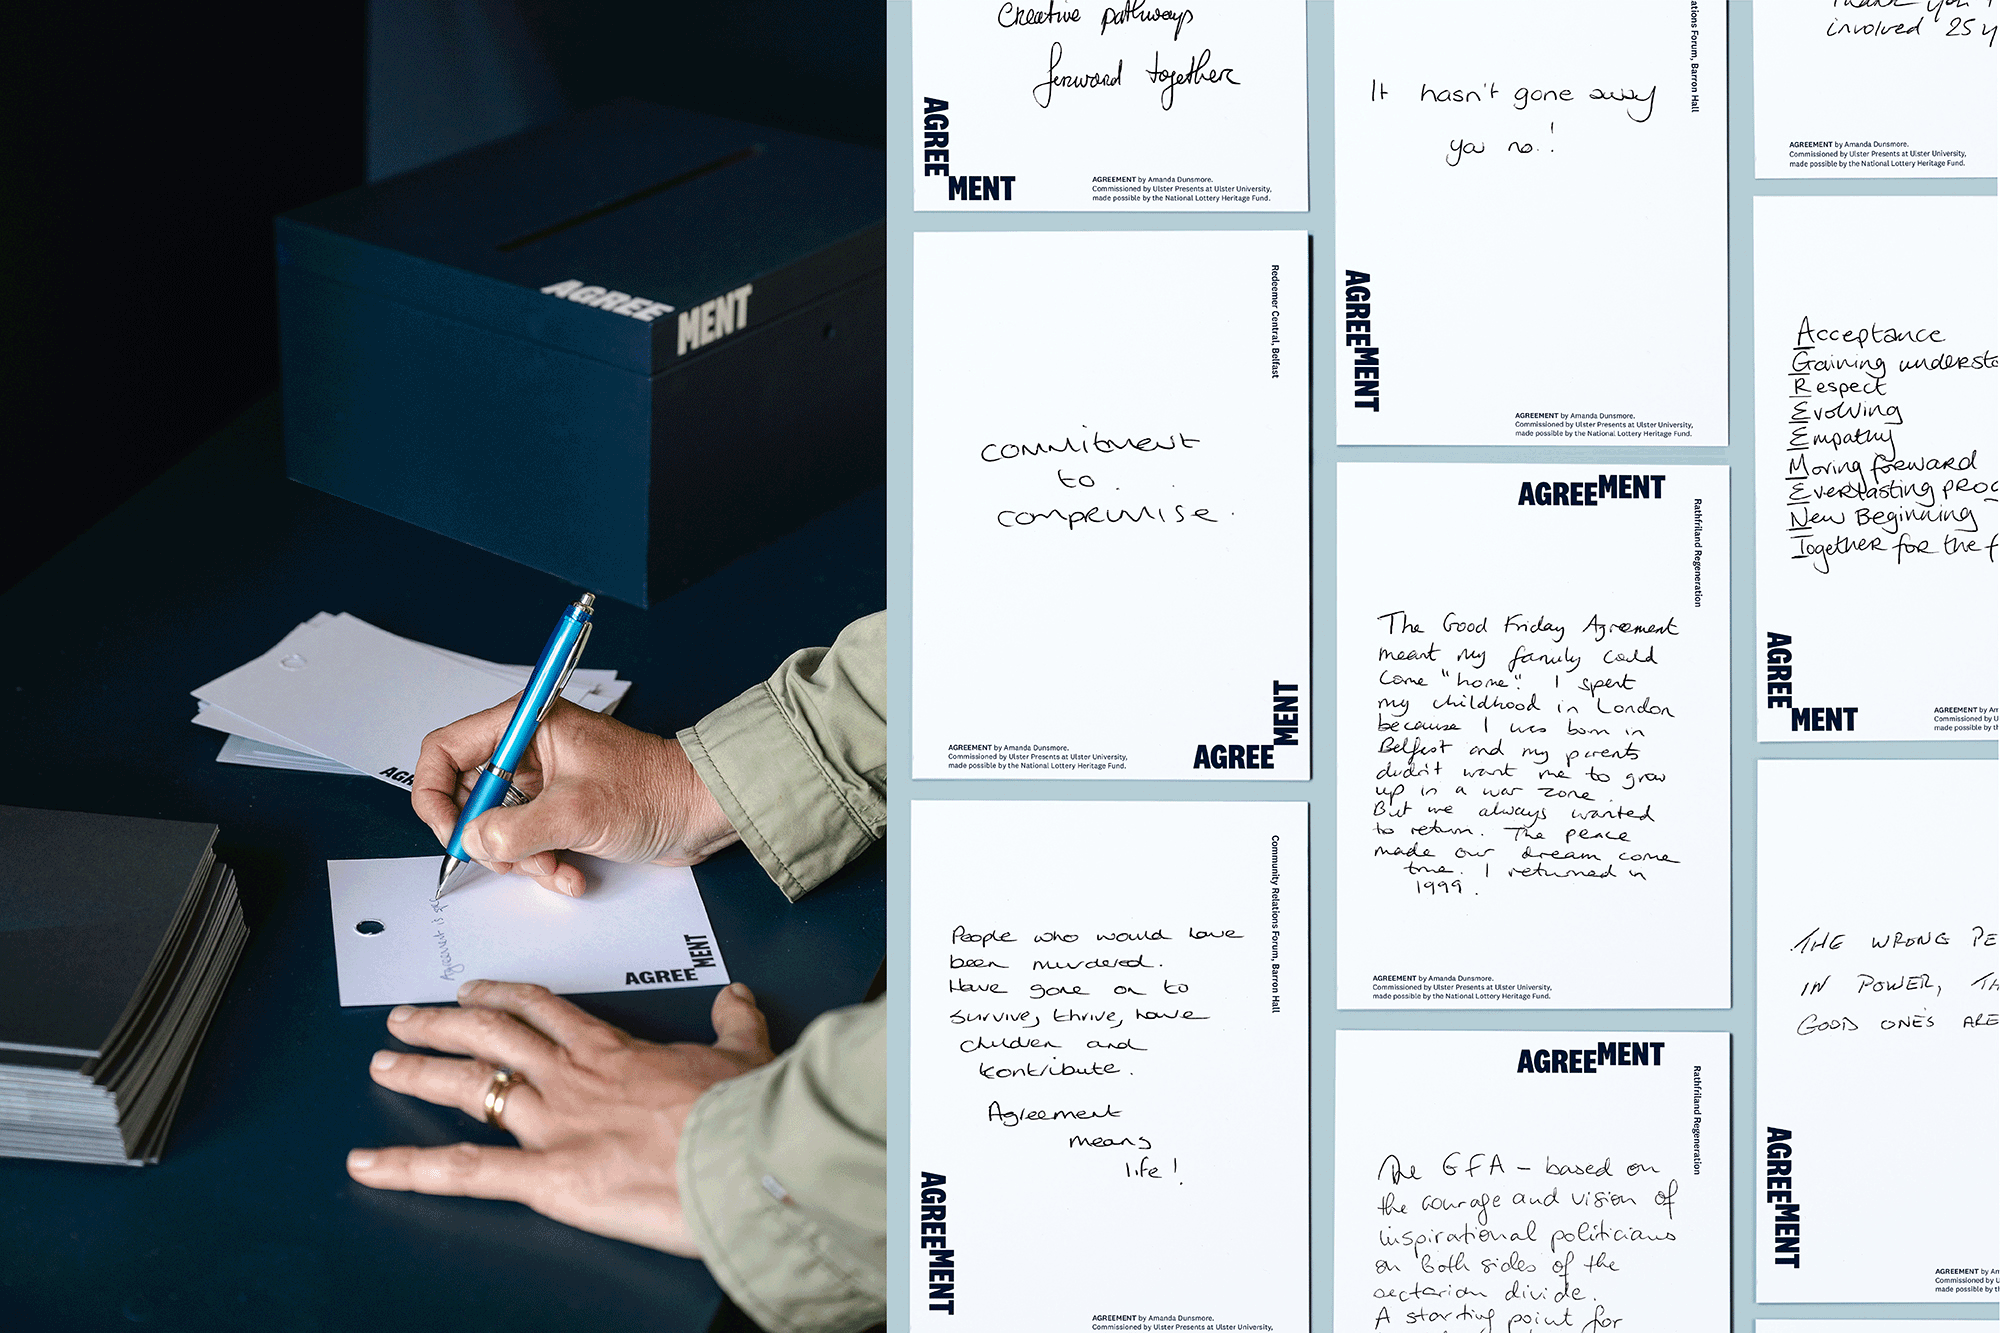 AGREE
MENT
AGR
Agreement is
AGREE
MENT
Creative pathways
forward together
AGREE
MENT
AGREEMENT by Amanda Dunsmore.
Commissioned by Ulster Presents at Ulster University,
made possible by the National Lottery Heritage Fund.
Redeemer Central, Belfast
commitment
to
compromise.
AGREEMENT by Amanda Dunsmore.
Commissioned by Ulster Presents at Ulster University,
made possible by the National Lottery Heritage Fund.
AGREE
MENT
Community Relations Forum, Barron Hall
People who would have
been murdered.
Have gone on to
survive, thrive, have
children and
contribute.
Agreement
means
life!
AGREEMENT
AGREEMENT by Amanda Dunsmore.
Commissioned by Ulster Presents at Ulster University,
ations Forum, Barron Hall
It hasn't gone away
you no!
AGREEMENT
AGREEMENT by Amanda Dunsmore.
Commissioned by Ulster Presents at Ulster University,
made possible by the National Lottery Heritage Fund.
AGREEMENT
Rathfriland Regeneration
The Good Friday Agreement
meant my family could
come "home". I spent
my childhood in London
because I was born in
Belfast and my parents
didn't want me to grow
up in a war zone.
But we always wanted
to return. The peace
made our dream come
true. I returned in
1999.
AGREEMENT by Amanda Dunsmore.
Commissioned by Ulster Presents at Ulster University,
made possible by the National Lottery Heritage Fund.
AGREEMENT
Rathfriland Regeneration
The GFA – based on
the courage and vision of
inspirational politicians
on both sides of the
sectarian divide.
A starting point for
Thank you
involved 25 y
AGREEMENT by Amanda Dunsmore.
Commissioned by Ulster Presents at Ulster University,
made possible by the National Lottery Heritage Fund.
Acceptance
Gaining understa
Respect
Evolving
Empathy
Moving forward
Everlasting prog
New Beginning
Together for the f
AGREE
MENT
AGREEMENT by Am
Commissioned by Uls
made possible by the
THE WRONG PE
IN POWER, TH
GOOD ONE'S ARE
AGREEMENT
AGREEMENT by Am
Commissioned by Uls
made possible by the N